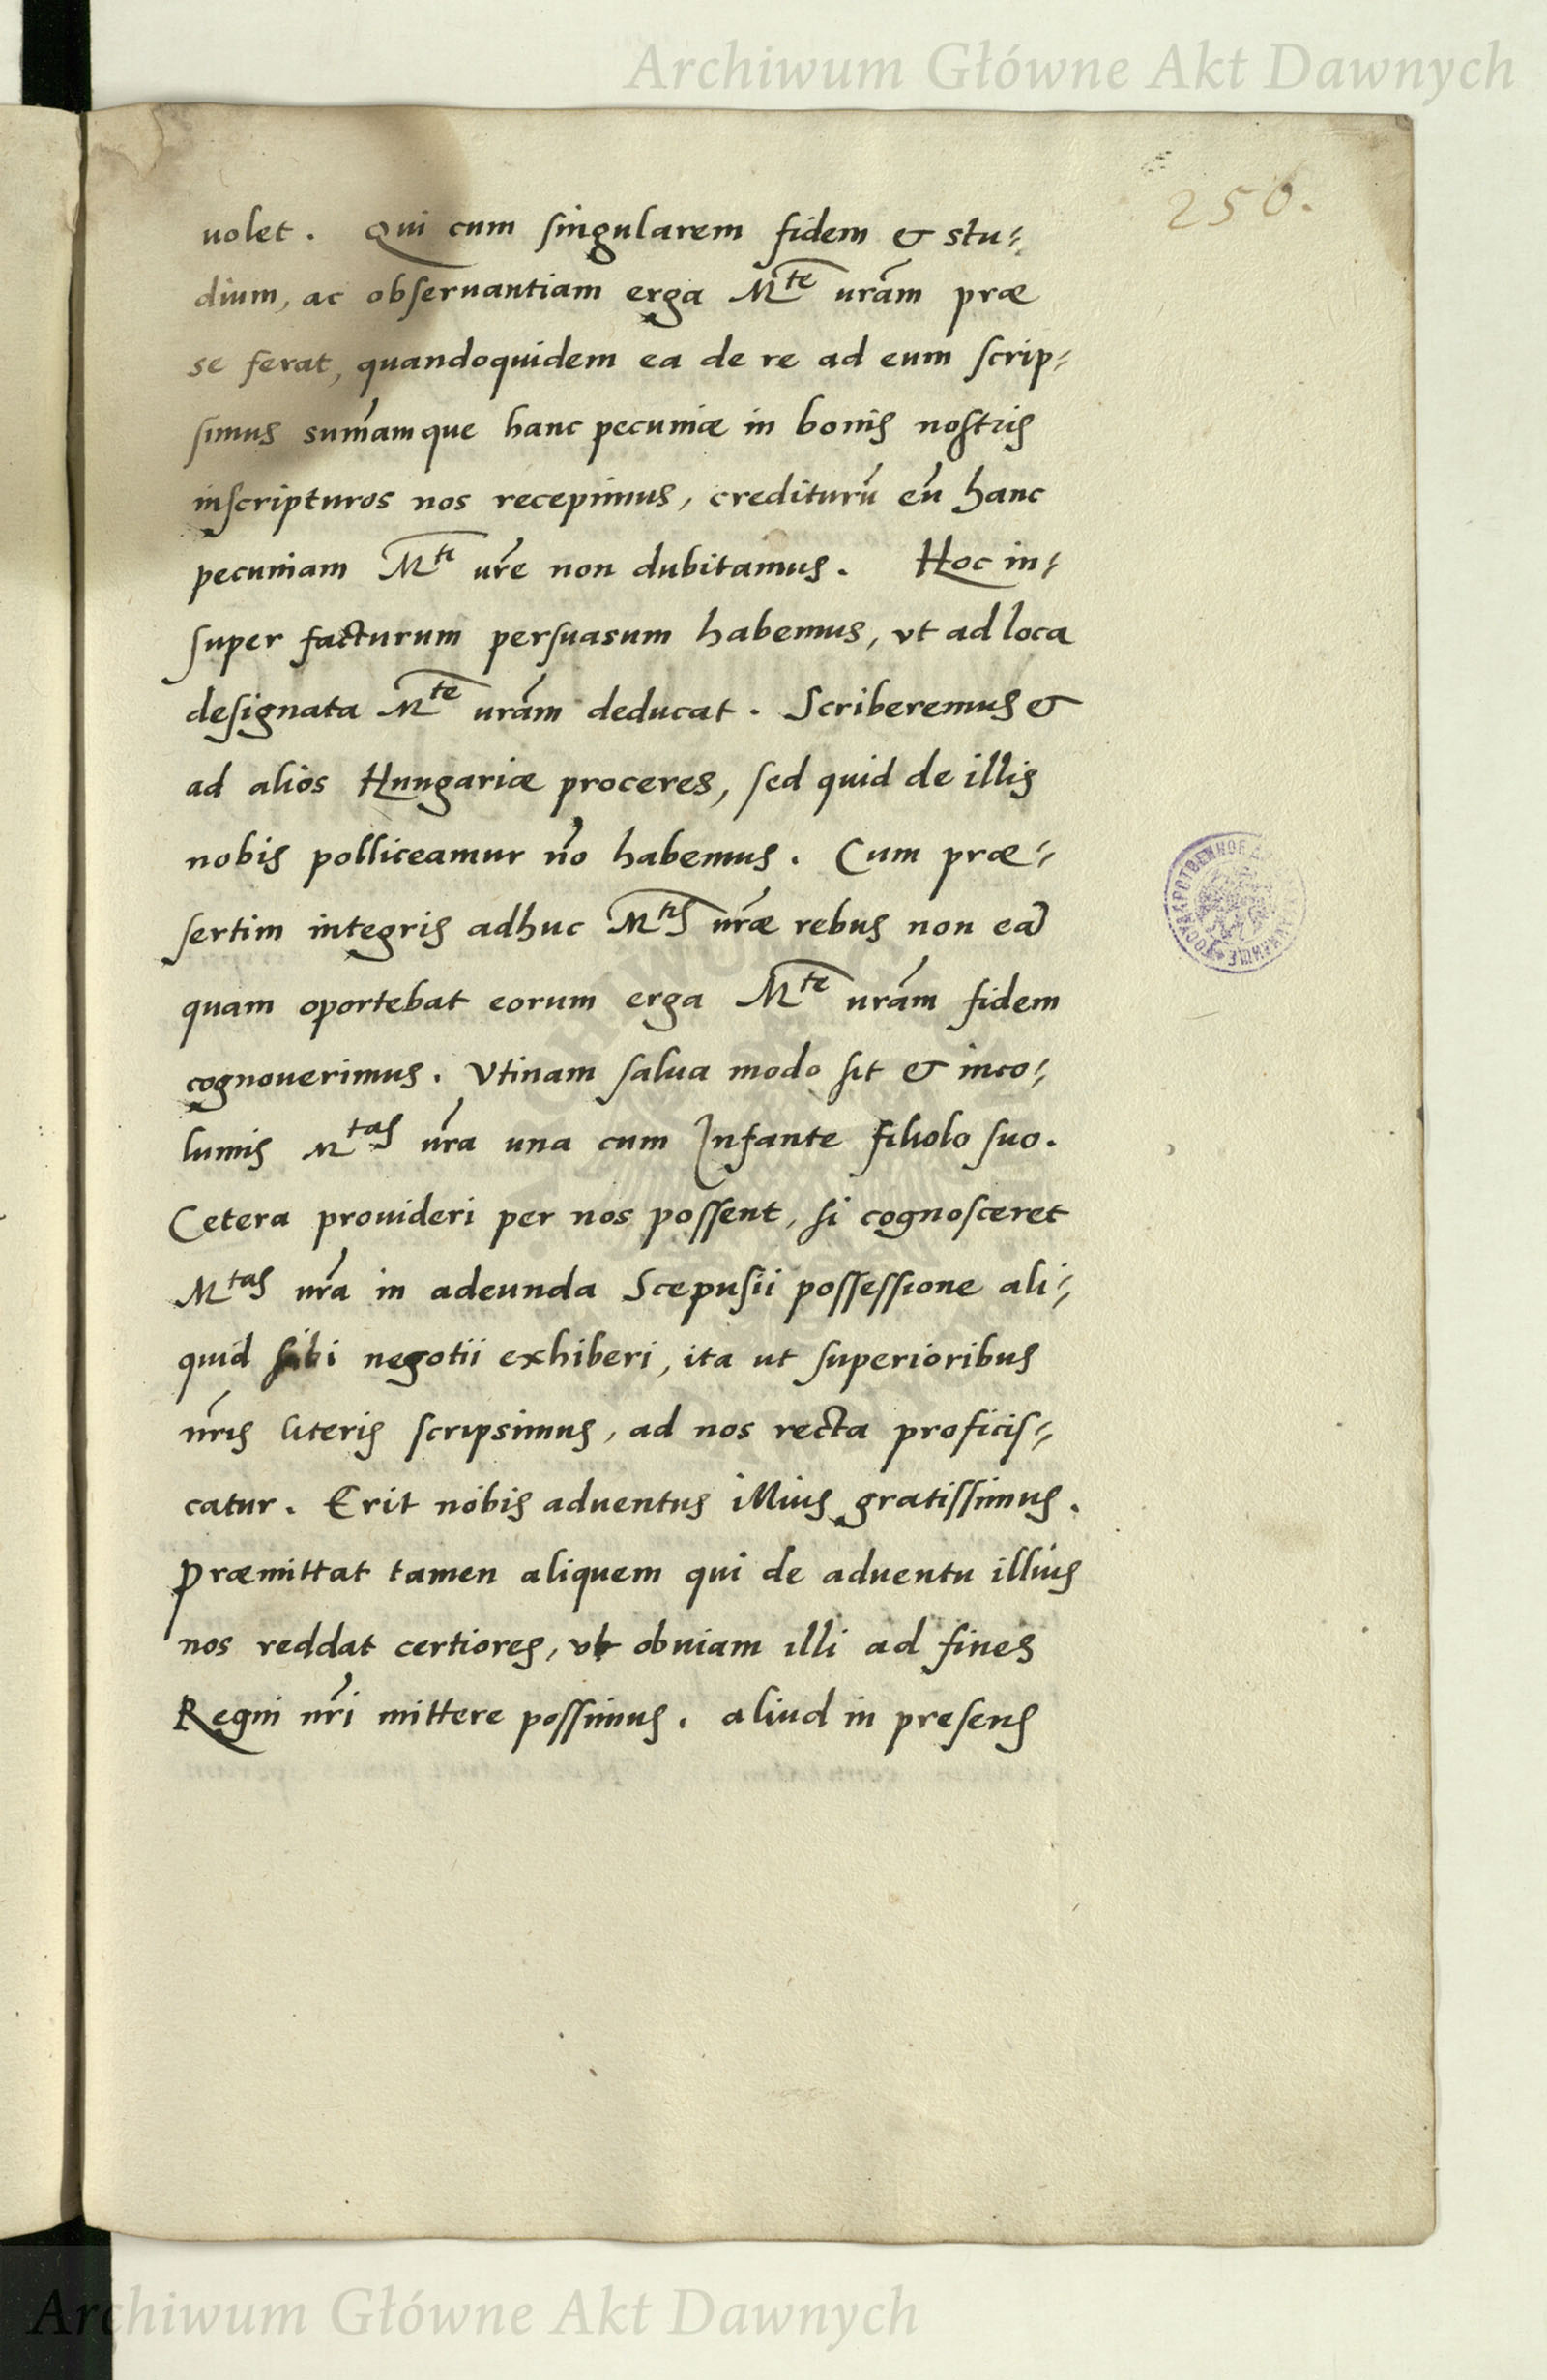 Archiwum Główne Akt Dawnych
256.
uolet. Qui cum singularem fidem & stu-
dium, ac obseruantiam erga M^te ur̃am præ
se ferat, quandoquidem ea de re ad eum scrip-
simus sum̃amque hanc pecuniæ in bonis nostris
inscripturos nos recepimus, crediturũ eũ hanc
pecuniam M^ti ur̃e non dubitamus. Hoc in-
super facturum persuasum habemus, vt ad loca
designata M^te ur̃am deducat. Scriberemus &
ad alios Hungariæ proceres, sed quid de illis
nobis polliceamur ño habemus. Cum præ-
sertim integris adhuc M^tis ur̃æ rebus non ea
quam oportebat eorum erga M^te ur̃am fidem
cognouerimus. Vtinam salua modo sit & inco-
lumis M^tas ur̃a una cum Infante filiolo suo.
Cetera prouideri per nos possent, si cognosceret
M^tas ur̃a in adeunda Scepusii possessione ali-
quid sibi negotii exhiberi, ita ut superioribus
nr̃is literis scripsimus, ad nos recta proficis-
catur. Erit nobis aduentus illius gratissimus.
Præmittat tamen aliquem qui de aduentu illius
nos reddat certiores, vt obuiam illi ad fines
Regni nr̃i mittere possimus. aliud in presens
Archiwum Główne Akt Dawnych